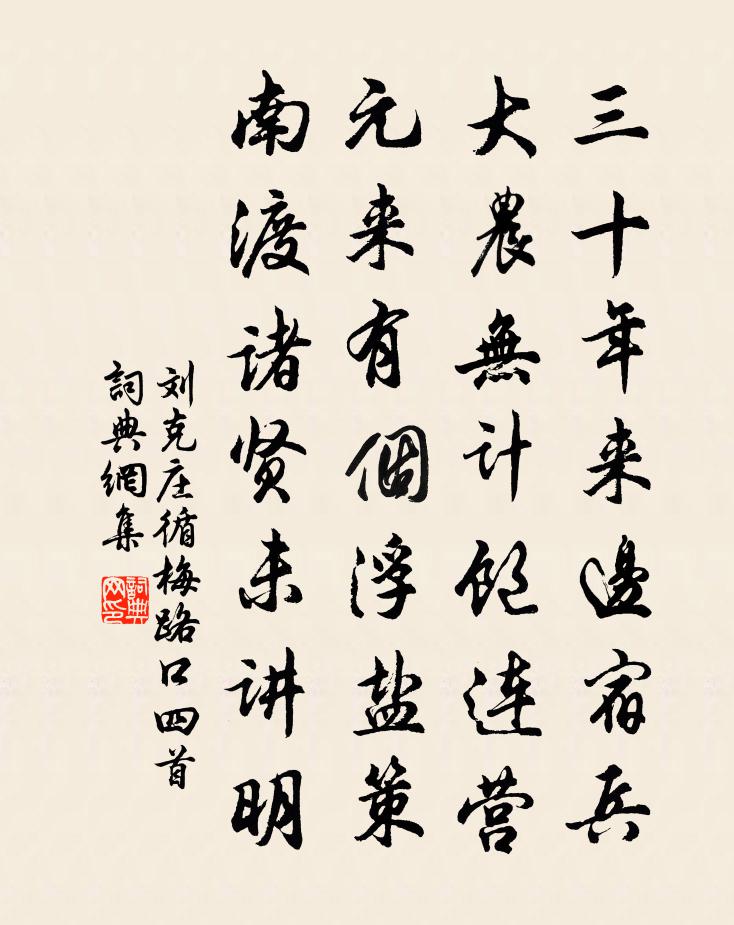 三十年来邊宿兵
大農無計饱連营
元来有個浮盐策
南渡諸贤未讲明
刘克庄循梅路口四首
詞典網集
詞典网印